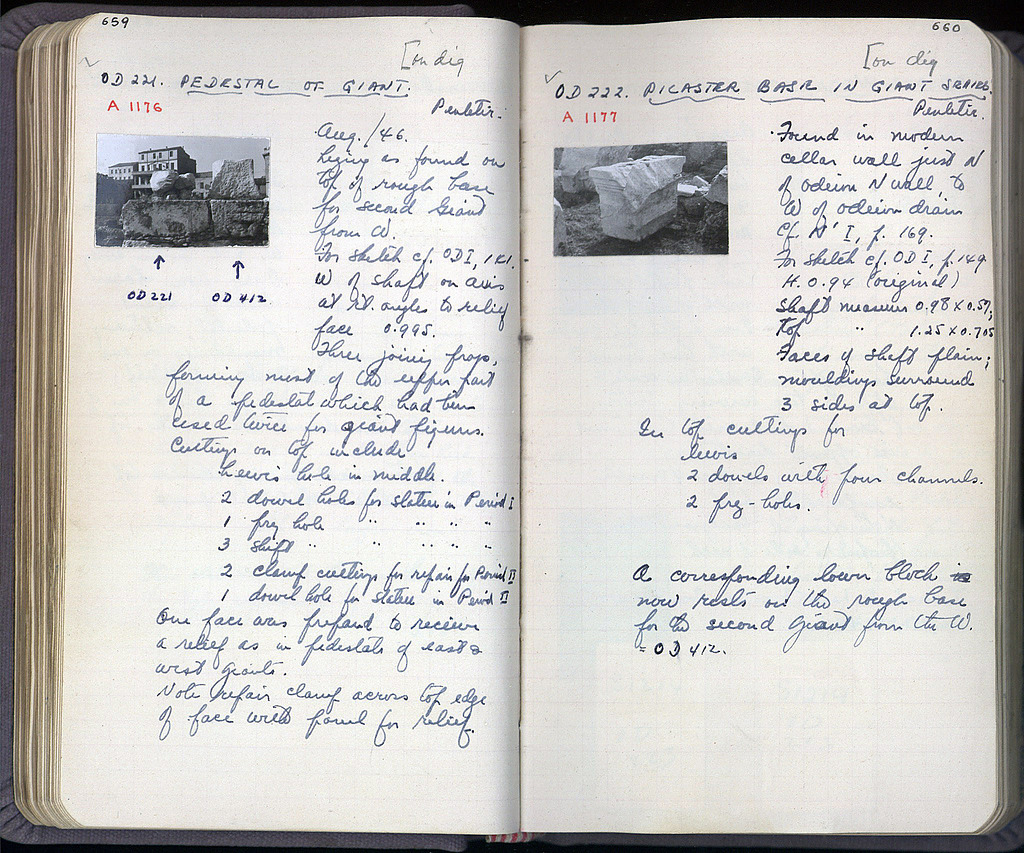 659
[on dig
OD 221. PEDESTAL OF GIANT.
A 1176
Pentelic.
Aug. /46.
Lying as found on
top of rough base
for second Giant
from W.
For sketch cf. OD I, 121.
W of shaft on axis
at rt. angles to relief
face 0.995.
Three joining frags,
forming most of the upper part
of a pedestal which had been
used twice for giant figures.
Cuttings on top include
Lewis hole in middle.
2 dowel holes for statue in Period I
1 pry hole " " " "
3 shift " " " "
2 clamp cuttings for repair for Period II
1 dowel hole for statue in Period II
One face was prepared to receive
a relief as in pedestals of east &
west giants.
Note repair clamp across top edge
of face with panel for relief.
OD 221
OD 412
660
[on dig
OD 222. PILASTER BASE IN GIANT SERIES.
A 1177
Pentelic.
Found in modern
cellar wall just N
of odeion N wall, to
W of odeion drain
Cf. N' I, p. 169.
For sketch cf. OD I, p. 149
H. 0.94 (original)
Shaft measures 0.98 x 0.57;
top " 1.25 x 0.705
Faces of shaft plain;
mouldings surround
3 sides at top.
In top cuttings for
lewis
2 dowels with pour channels.
2 pry-holes.
A corresponding lower block
now rests on the rough base
for the second Giant from the W.
= OD 412.